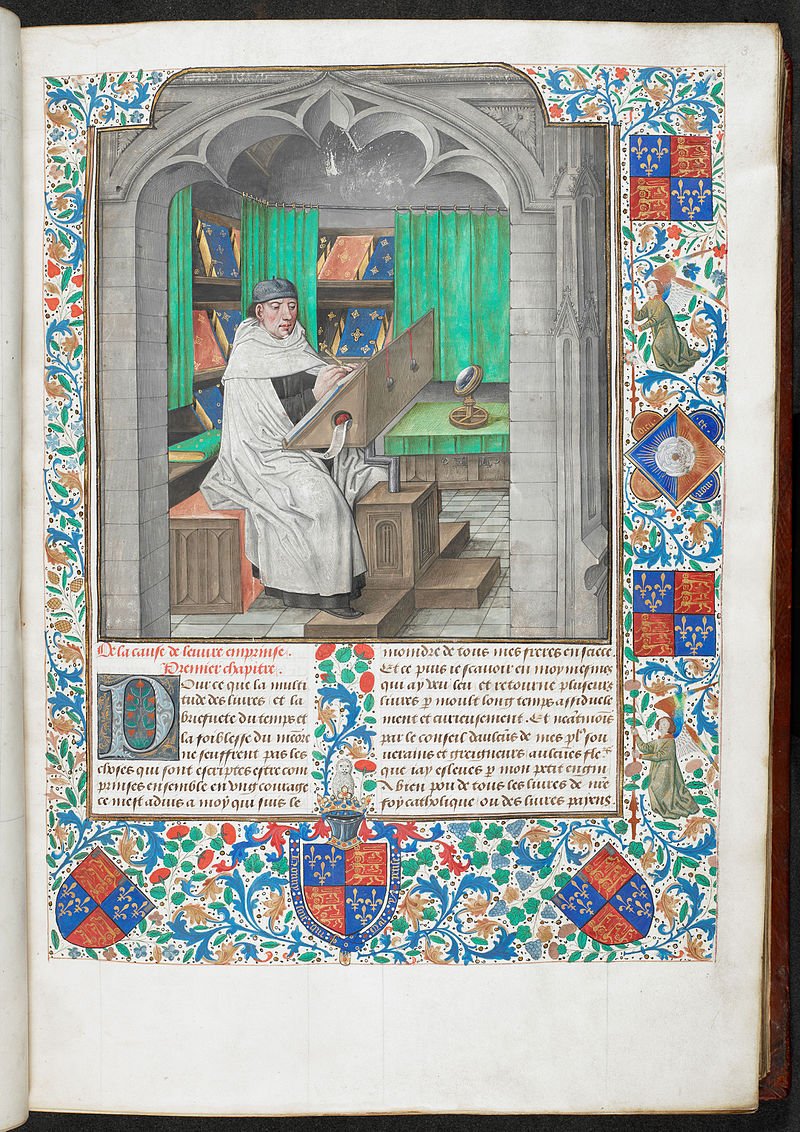 De la cause de leuure emprinse.
Premier chapitre.
Pour ce que la multi
tude des liures et la
briefuete du temps et
la foiblesse du memoire
ne seuffrent pas les
choses qui sont escriptes estre com
prinses ensemble en vng courage
ce mest aduis a moy qui suis le
moindre de tous mes freres en saece.
Et ce puis ie scauoir en moy mesmes
qui ay veu leu et retourne plusieurs
liures p moult long temps assiduele
ment et curieusement. Et neatmois
par le conseil daulcūs de mes
uerains et greigneurs aulcūes fle
que iay esleues p mon petit engin
A bien pou de tous les liures de nre
foy catholique ou des liures payens